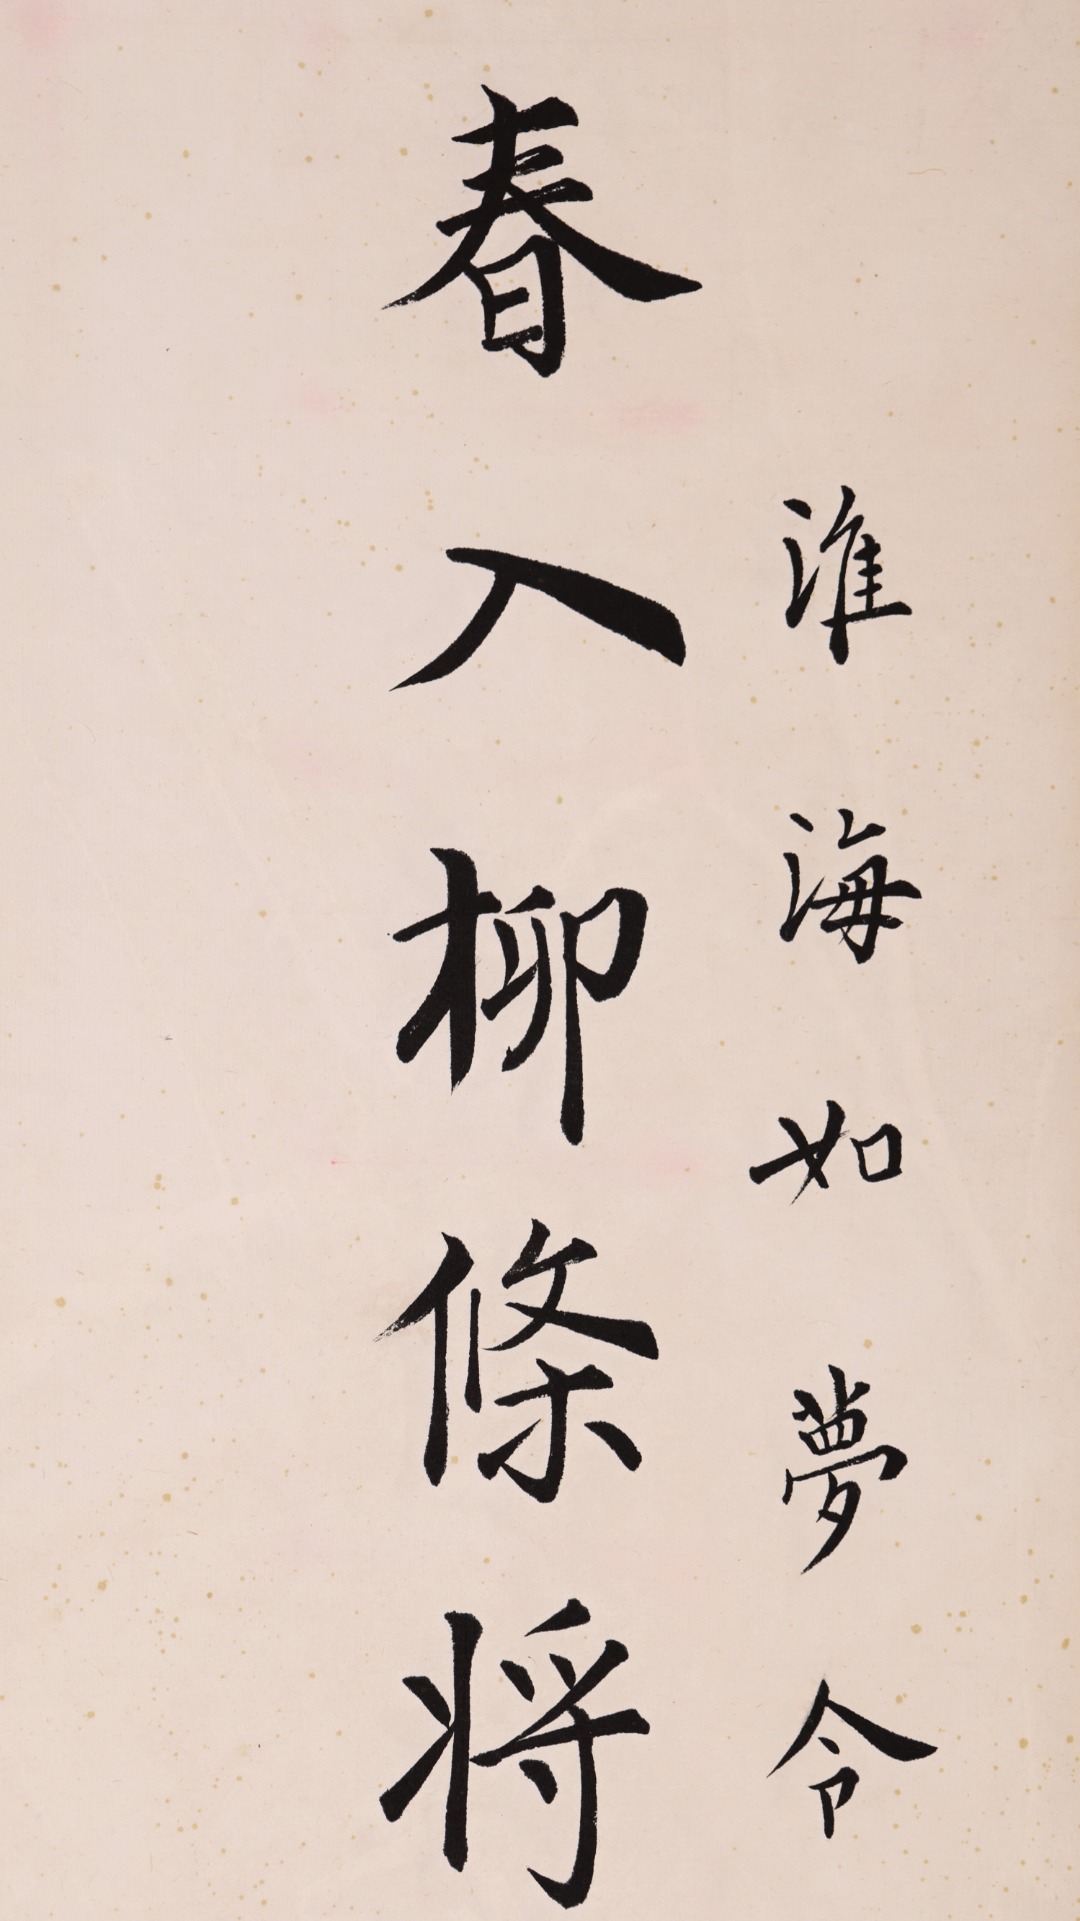 淮海如夢令
春入柳條將